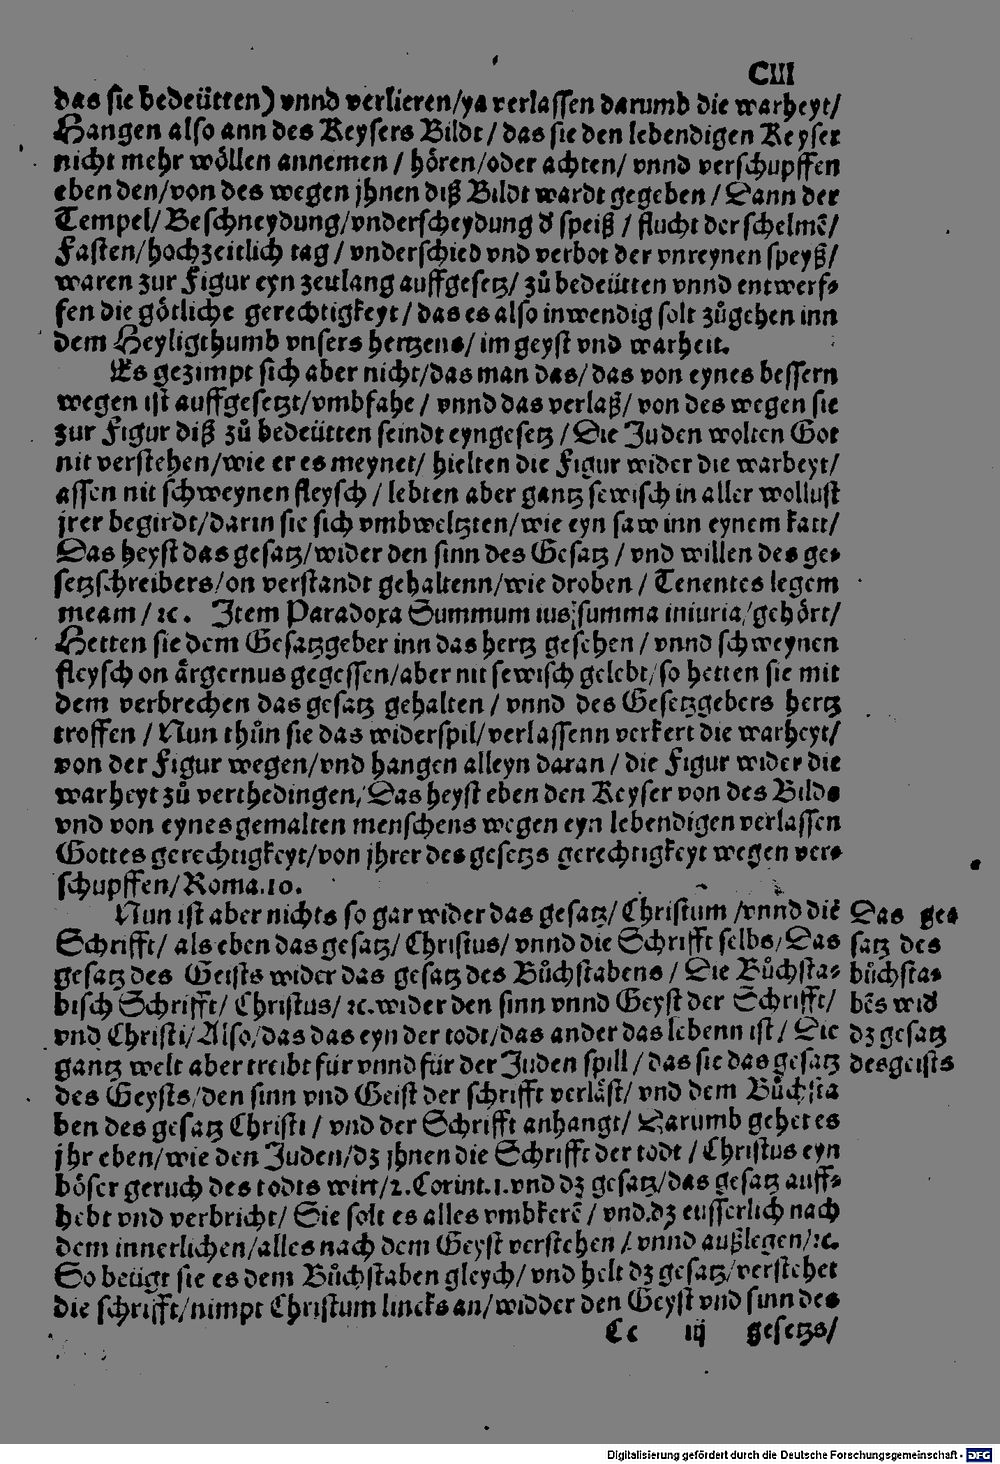 CIII
das sie bedeütten) vnnd verlieren/ya verlassen darumb die warheyt/
Hangen also ann des Keysers Bildt/ das sie den lebendigen Keyser
nicht mehr wöllen annemen / hören/oder achten/ vnnd verschupffen
eben den/von des wegen jhnen diß Bildt wardt gegeben / Dann der
Tempel/ Beschneydung/vnderscheydung d speiß / flucht der schelmē/
Fasten/hochzeitlich tag / vnderschied vnd verbot der vnreynen speyß/
waren zur Figur eyn zeutlang auffgesetz/ zů bedeütten vnnd entwerf-
fen die götliche gerechtigkeyt / das es also inwendig solt zůgehen inn
dem Heyligthumb vnsers hertzens/ im geyst vnd warheit.
Es gezimpt sich aber nicht/das man das/das von eynes bessern
wegen ist auffgesetzt/vmbfahe / vnnd das verlaß/ von des wegen sie
zur Figur diß zů bedeütten seindt eyngesetz / Die Juden wolten Got
nit verstehen/wie er es meynet/ hielten die Figur wider die warheyt/
assen nit schweynen fleysch / lebten aber gantz sewisch in aller wollust
jrer begirdt/darin sie sich vmbweltzten/wie eyn saw inn eynem katt/
Das heyst das gesatz/wider den sinn des Gesatz / vnd willen des ge-
setzschreibers/on verstandt gehaltenn/wie droben / Tenentes legem
meam / ꝛc. Item Paradoxa Summum ius/summa iniuria/gehört/
Hetten sie dem Gesatzgeber inn das hertz gesehen / vnnd schweynen
fleysch on ärgernus gegessen/aber nit sewisch gelebt/so hetten sie mit
dem verbrechen das gesatz gehalten / vnnd des Gesetzgebers hertz
troffen / Nun thůn sie das widerspil/verlassenn verkert die warheyt/
von der Figur wegen/vnd hangen alleyn daran / die Figur wider die
warheyt zů verthedingen/ Das heyst eben den Keyser von des Bilds
vnd von eynes gemalten menschens wegen eyn lebendigen verlassen
Gottes gerechtigkeyt/von jhrer des gesetzs gerechtigkeyt wegen ver-
schupffen/Roma.10.
Nun ist aber nichts so gar wider das gesatz/ Christum /vnnd die
Schrifft/ als eben das gesatz/ Christus/ vnnd die Schrifft selbs/Das
gesatz des Geists wider das gesatz des Bůchstabens / Die Bůchsta-
bisch Schrifft/ Christus/ ꝛc.wider den sinn vnnd Geyst der Schrifft/
vnd Christi/Also/das das eyn der todt/das ander das lebenn ist/ Die
gantz welt aber treibt für vnnd für der Juden spill / das sie das gesatz
des Geysts/den sinn vnd Geist der schrifft verläst/ vnd dem Bůchsta
ben des gesatz Christi / vnd der Schrifft anhangt/ Darumb gehet es
jhr eben/wie den Juden/dz jhnen die Schrifft der todt / Christus eyn
böser geruch des todts wirt/2.Corint.1.vnd dz gesatz/das gesatz auff-
hebt vnd verbricht/ Sie solt es alles vmbkerē / vnd.dz eusserlich nach
dem innerlichen/alles nach dem Geyst verstehen / vnnd außlegen/ꝛc.
So beügt sie es dem Bůchstaben gleych/ vnd helt dz gesatz/verstehet
die schrifft/nimpt Christum lincks an/widder den Geyst vnd sinn des
Cc iij gesetzs/
Das ge-
satz des
bůchsta-
bēs wid
dz gesatz
des geists
Digitalisierung gefördert durch die Deutsche Forschungsgemeinschaft - DFG